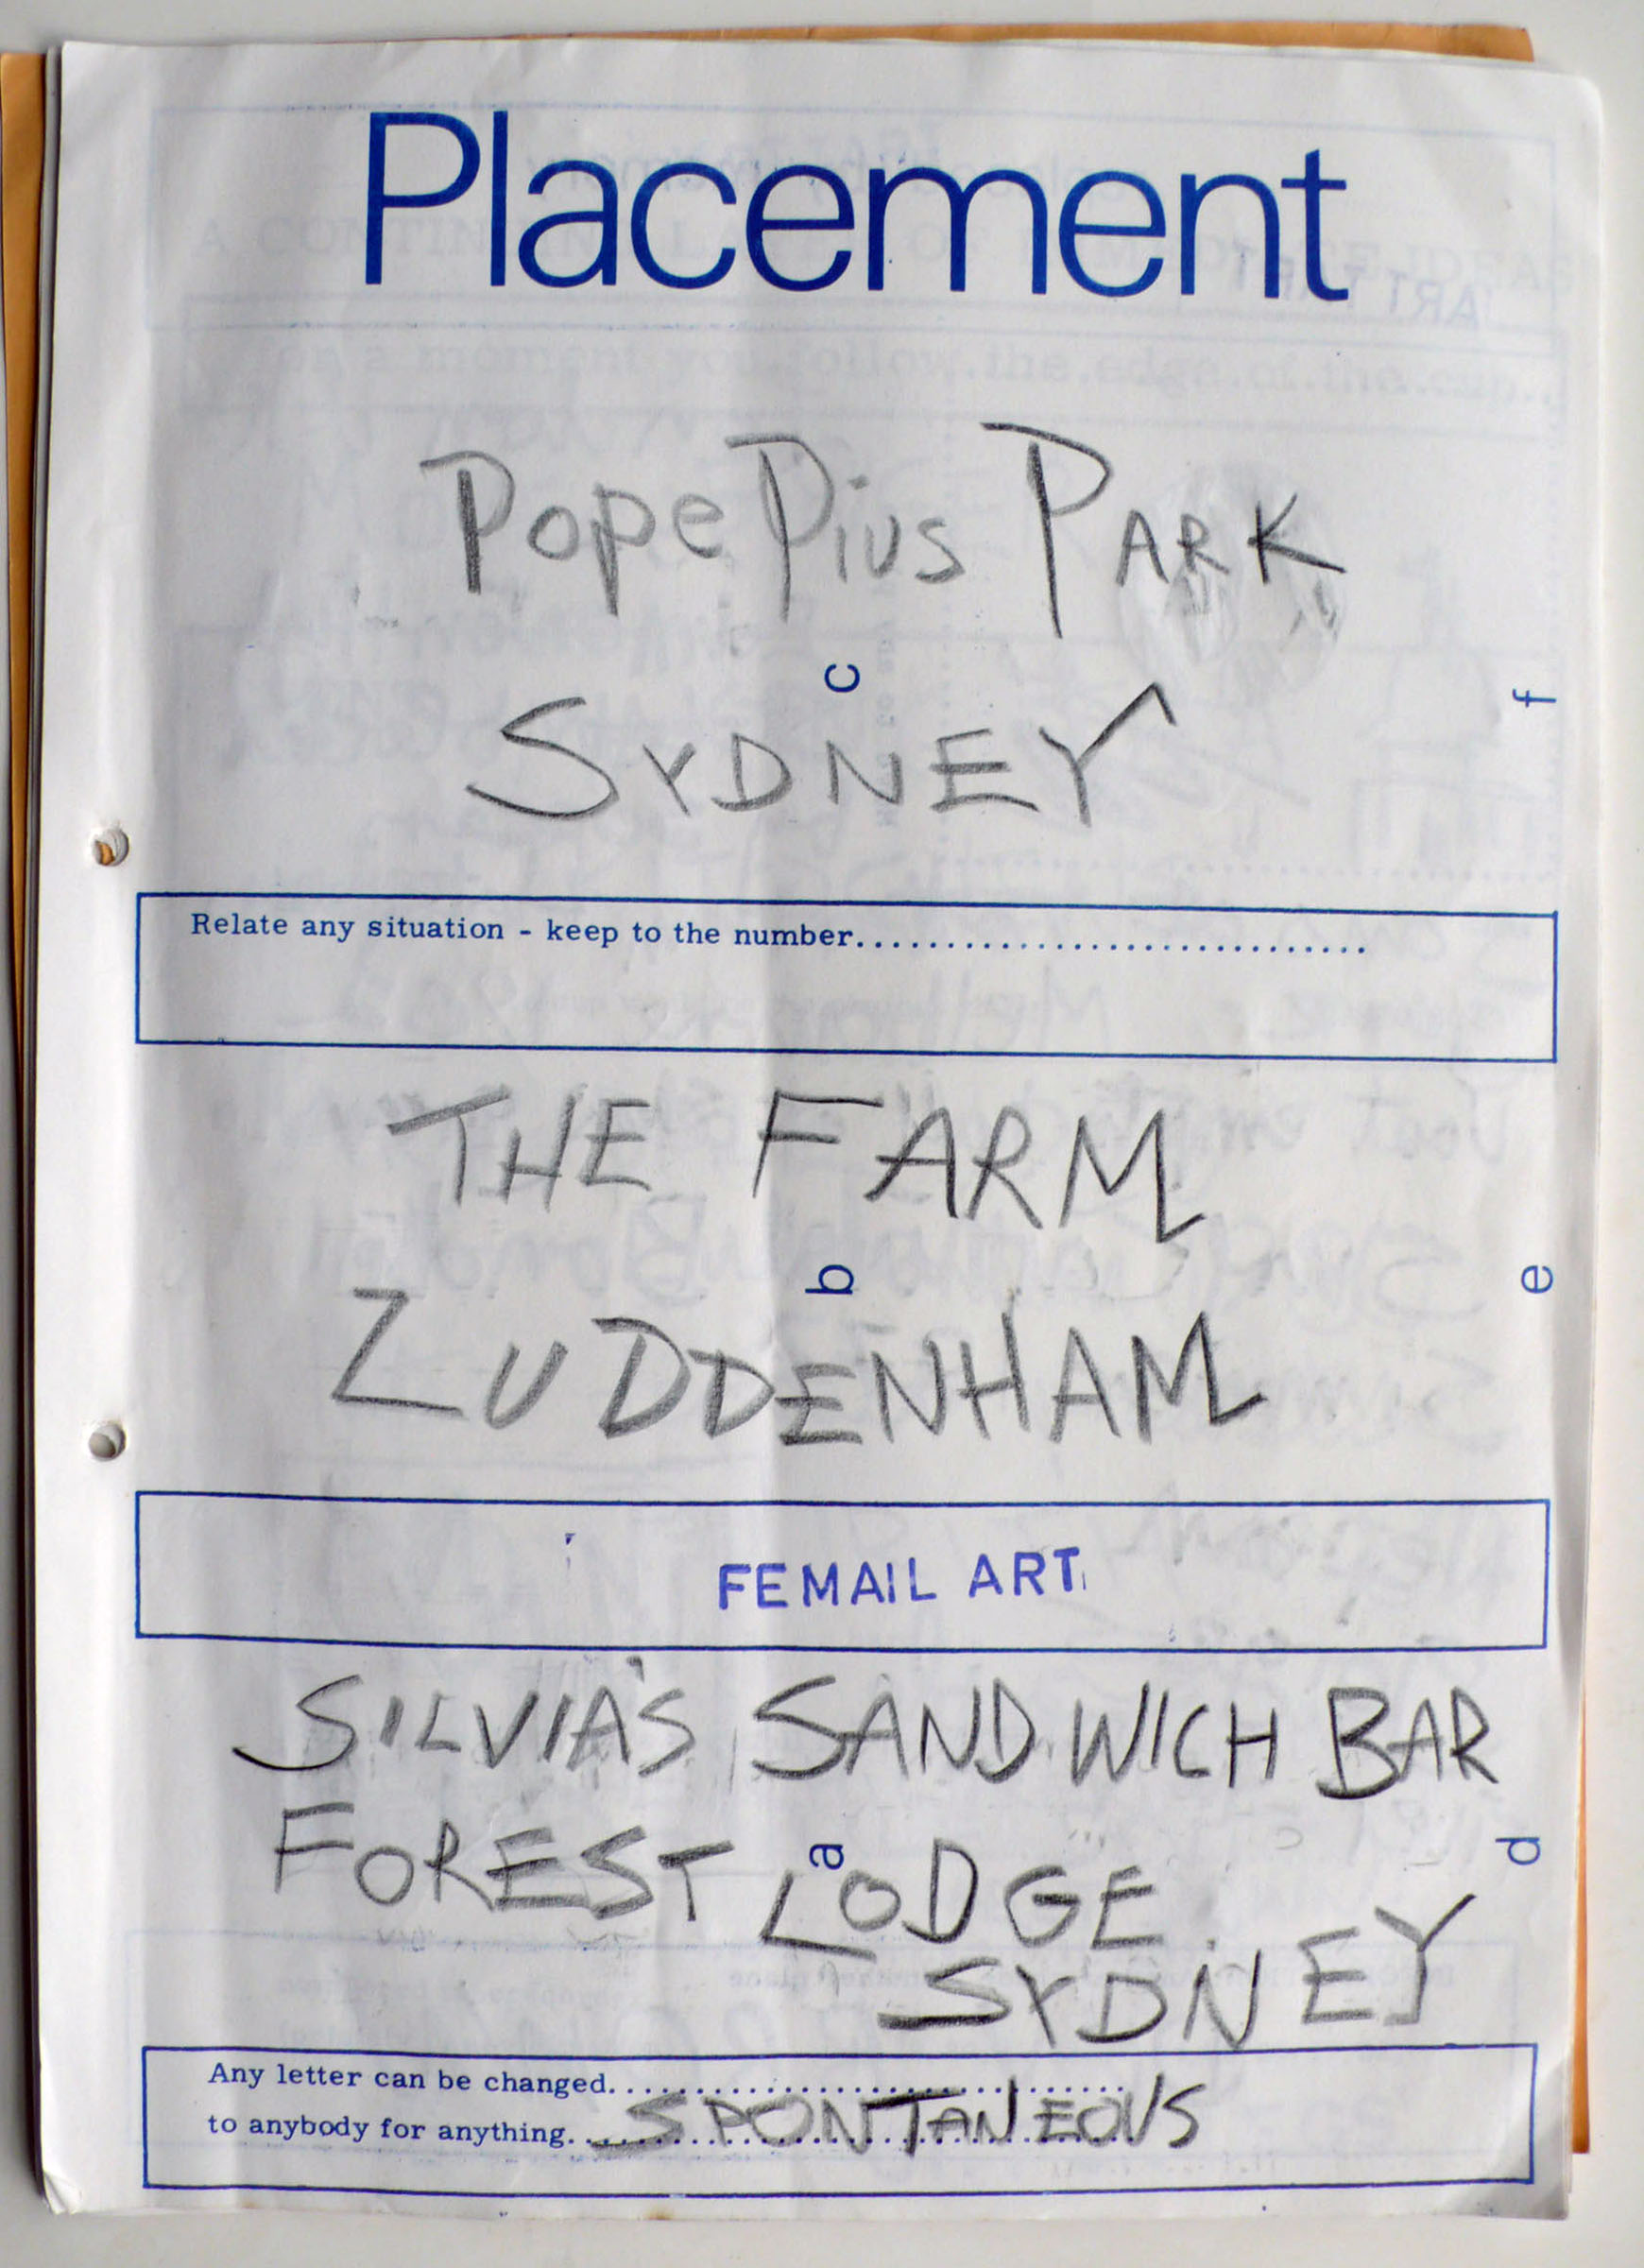 Placement
Pope Pius PARK
c
f
SYDNEY
Relate any situation - keep to the number..............................
THE FARM
b
e
LUDDENHAM
FEMAIL ART
SILVIA'S SANDWICH BAR
FOREST LODGE
a
d
SYDNEY
Any letter can be changed..............................
to anybody for anything.............................. SPONTANEOUS